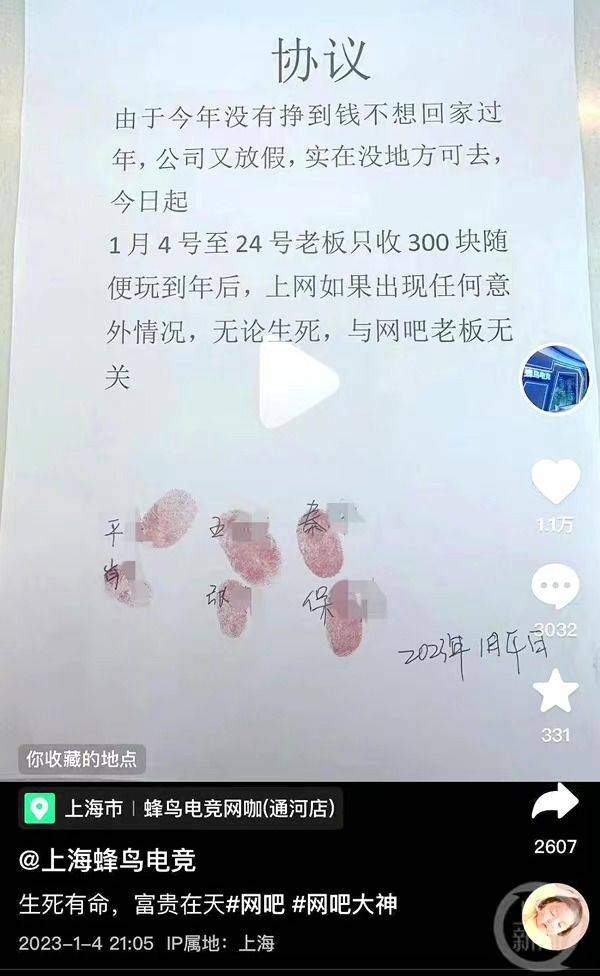 协议
由于今年没有挣到钱不想回家过
年，公司又放假，实在没地方可去，
今日起
1月4号至24号老板只收300块随
便玩到年后，上网如果出现任何意
外情况，无论生死，与网吧老板无
关
平
秦
肖
张
保
2023年1月4日
1.1万
3032
331
2607
你收藏的地点
上海市 | 蜂鸟电竞网咖(通河店)
@上海蜂鸟电竞
生死有命，富贵在天#网吧 #网吧大神
2023-1-4 21:05 IP属地：上海